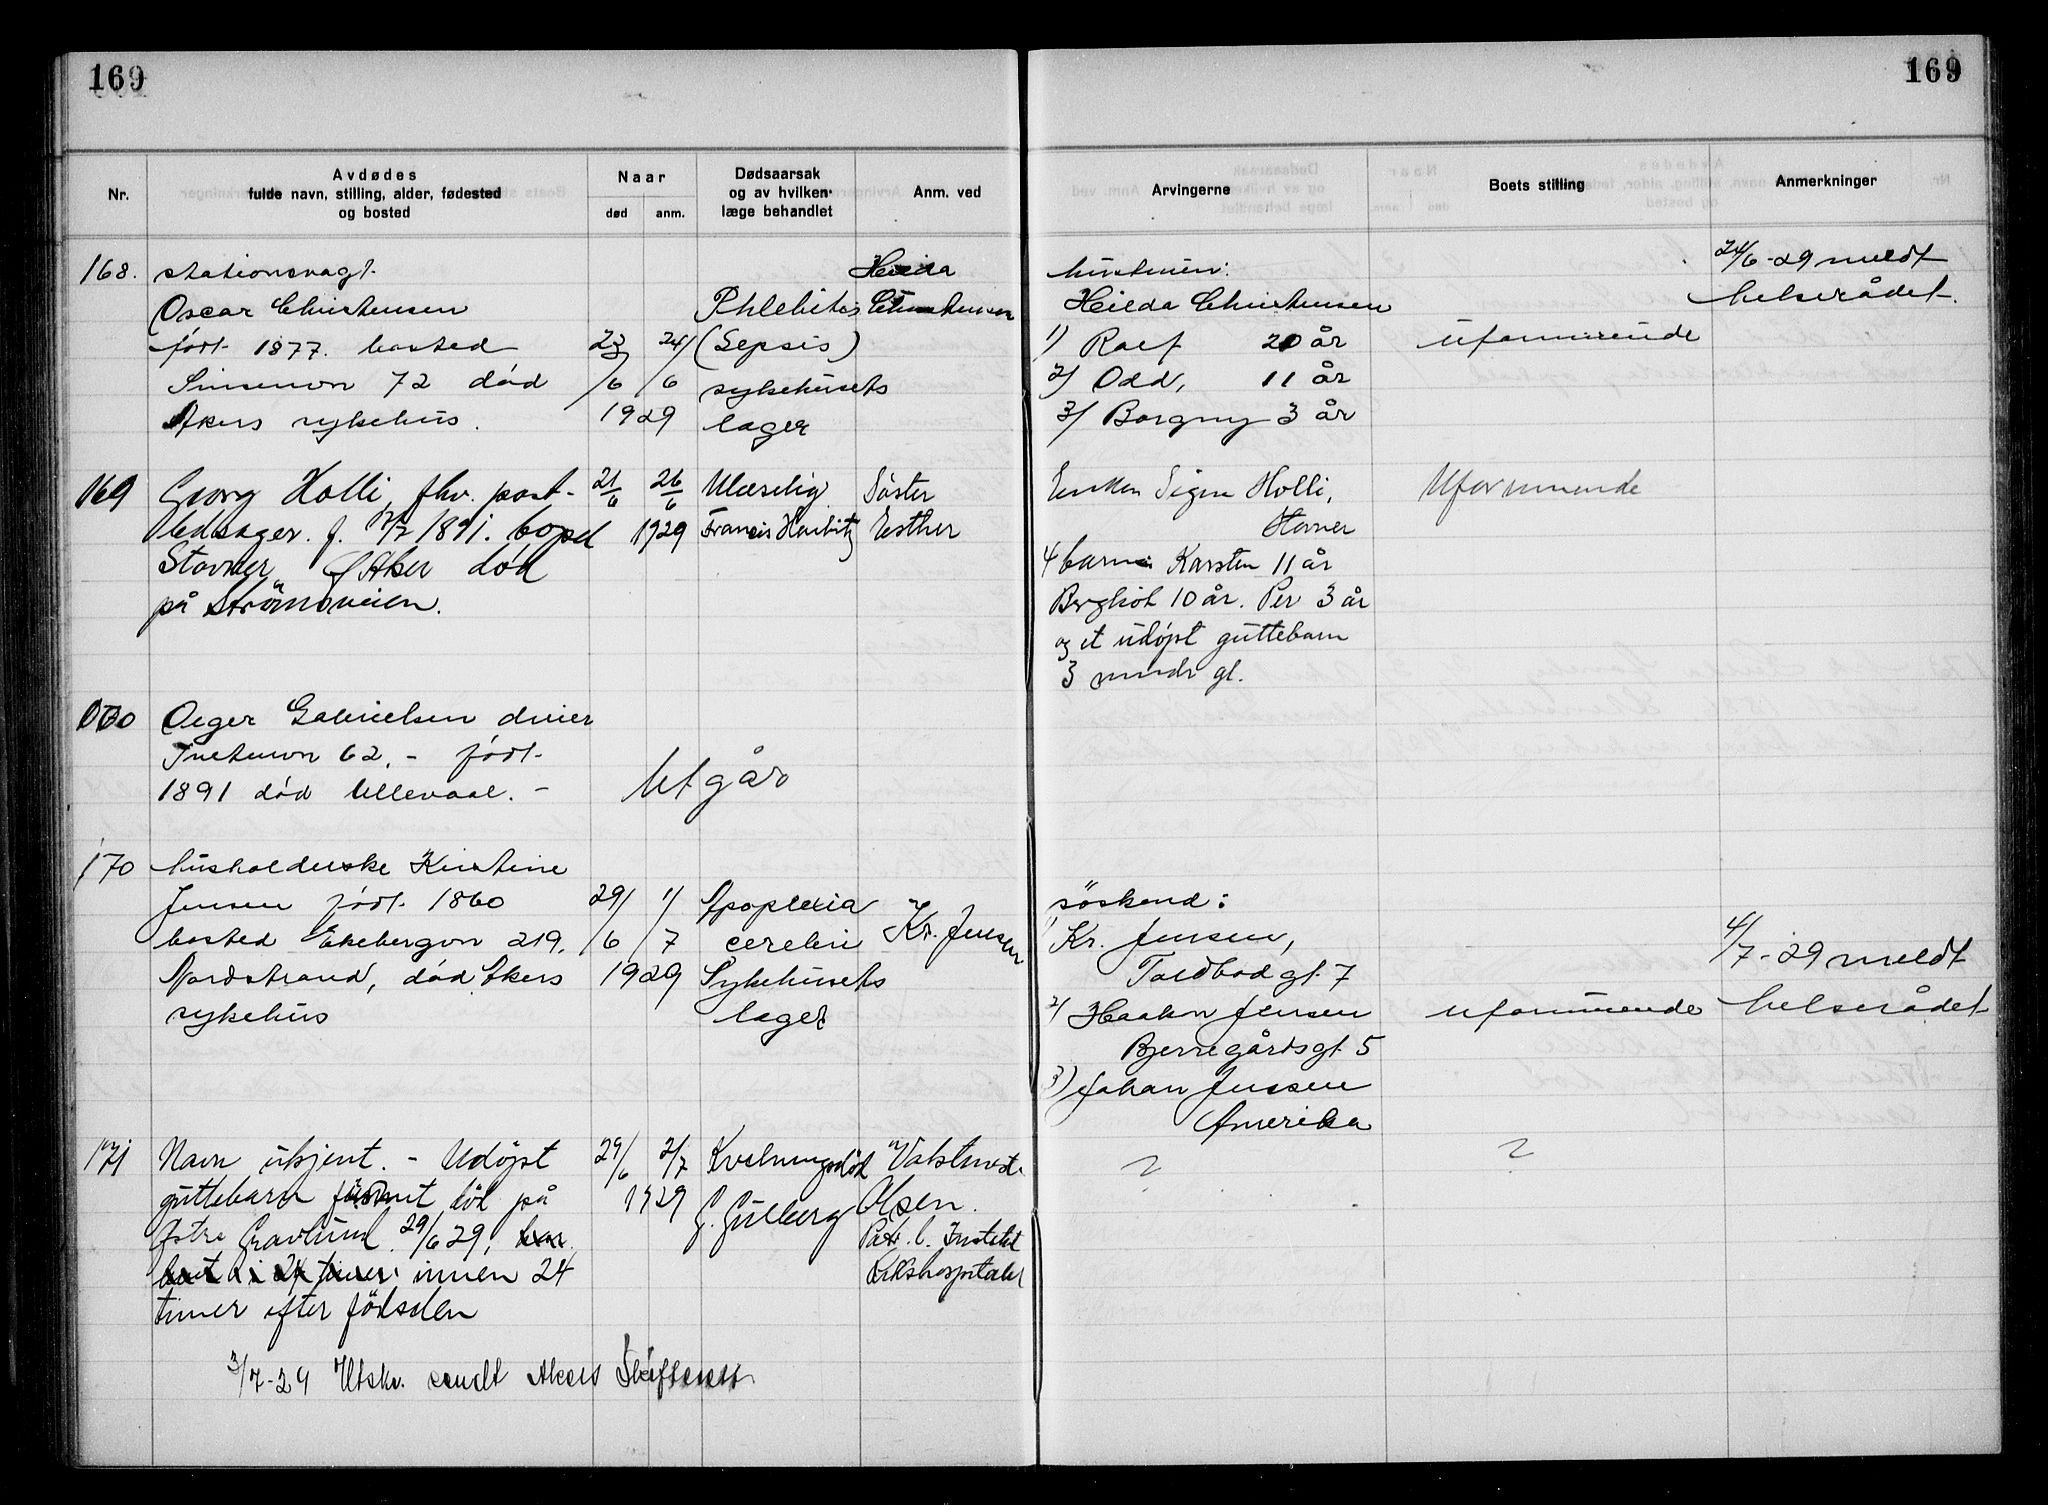 169
169
Nr.
Avdødes
fulde navn, stilling, alder, fødested
og bosted
Naar
død
anm.
Dødsaarsak
og av hvilken
læge behandlet
Anm. ved
Arvingerne
Boets stilling
Anmerkninger
168.
stationsvagt
Oscar Christensen
født 1877. bosted
Sinsenvn 72 død
Akers sykehus.
23/6
24/6
1929
Phlebitis
(Sepsis)
sykehusets
læger
Hilda
Christensen
hustruen:
Hilda Christensen
1) Rolf 20 år
2) Odd, 11 år
3) Borgny 3 år
uformuende
24/6-29 meldt
helserådet.
169
Georg Holli, fhv. post-
ledsager. f. 1891. bopel
Stovner, Ø Aker død
på Strømsveien.
21/6
26/6
1929
Ulæselig
Francis Harbitz
Søster
Esther
Enken Signe Holli,
4 barn: Karsten 11 år
Bergliot 10 år. Per 3 år
og et udøpt guttebarn
3 mndr gl.
Uformuende
Gabrielsen
Tvetenvn 62. - født
1891 død Ullevaal. -
Utgår
170
husholderske Kirstine
Jensen født 1860
bosted Ekebergvn 219.
Nordstrand, død Akers
sykehus
29/6
1/7
1929
Apoplexia
cerebri
Sykehusets
læger
Kr. Jensen
søskend:
1) Kr. Jensen,
Toldbodgt 7
2) Haakon Jensen
Bjerregårdsgt 5
3) Johan Jenssen
Amerika
uformuende
4/7-29 meldt
helserådet
171
Navn ukjent. - Udøpt
guttebarn funnet død på
Østre Gravlund 29/6 29,
innen 24
timer efter fødselen
29/6
2/7
1929
Kvelningsdød
Vaktmest.
Olsen.
Pat. Institut
Rikshospitalet
?
?
3/7-29 Utskr. sendt Akers Skifterett